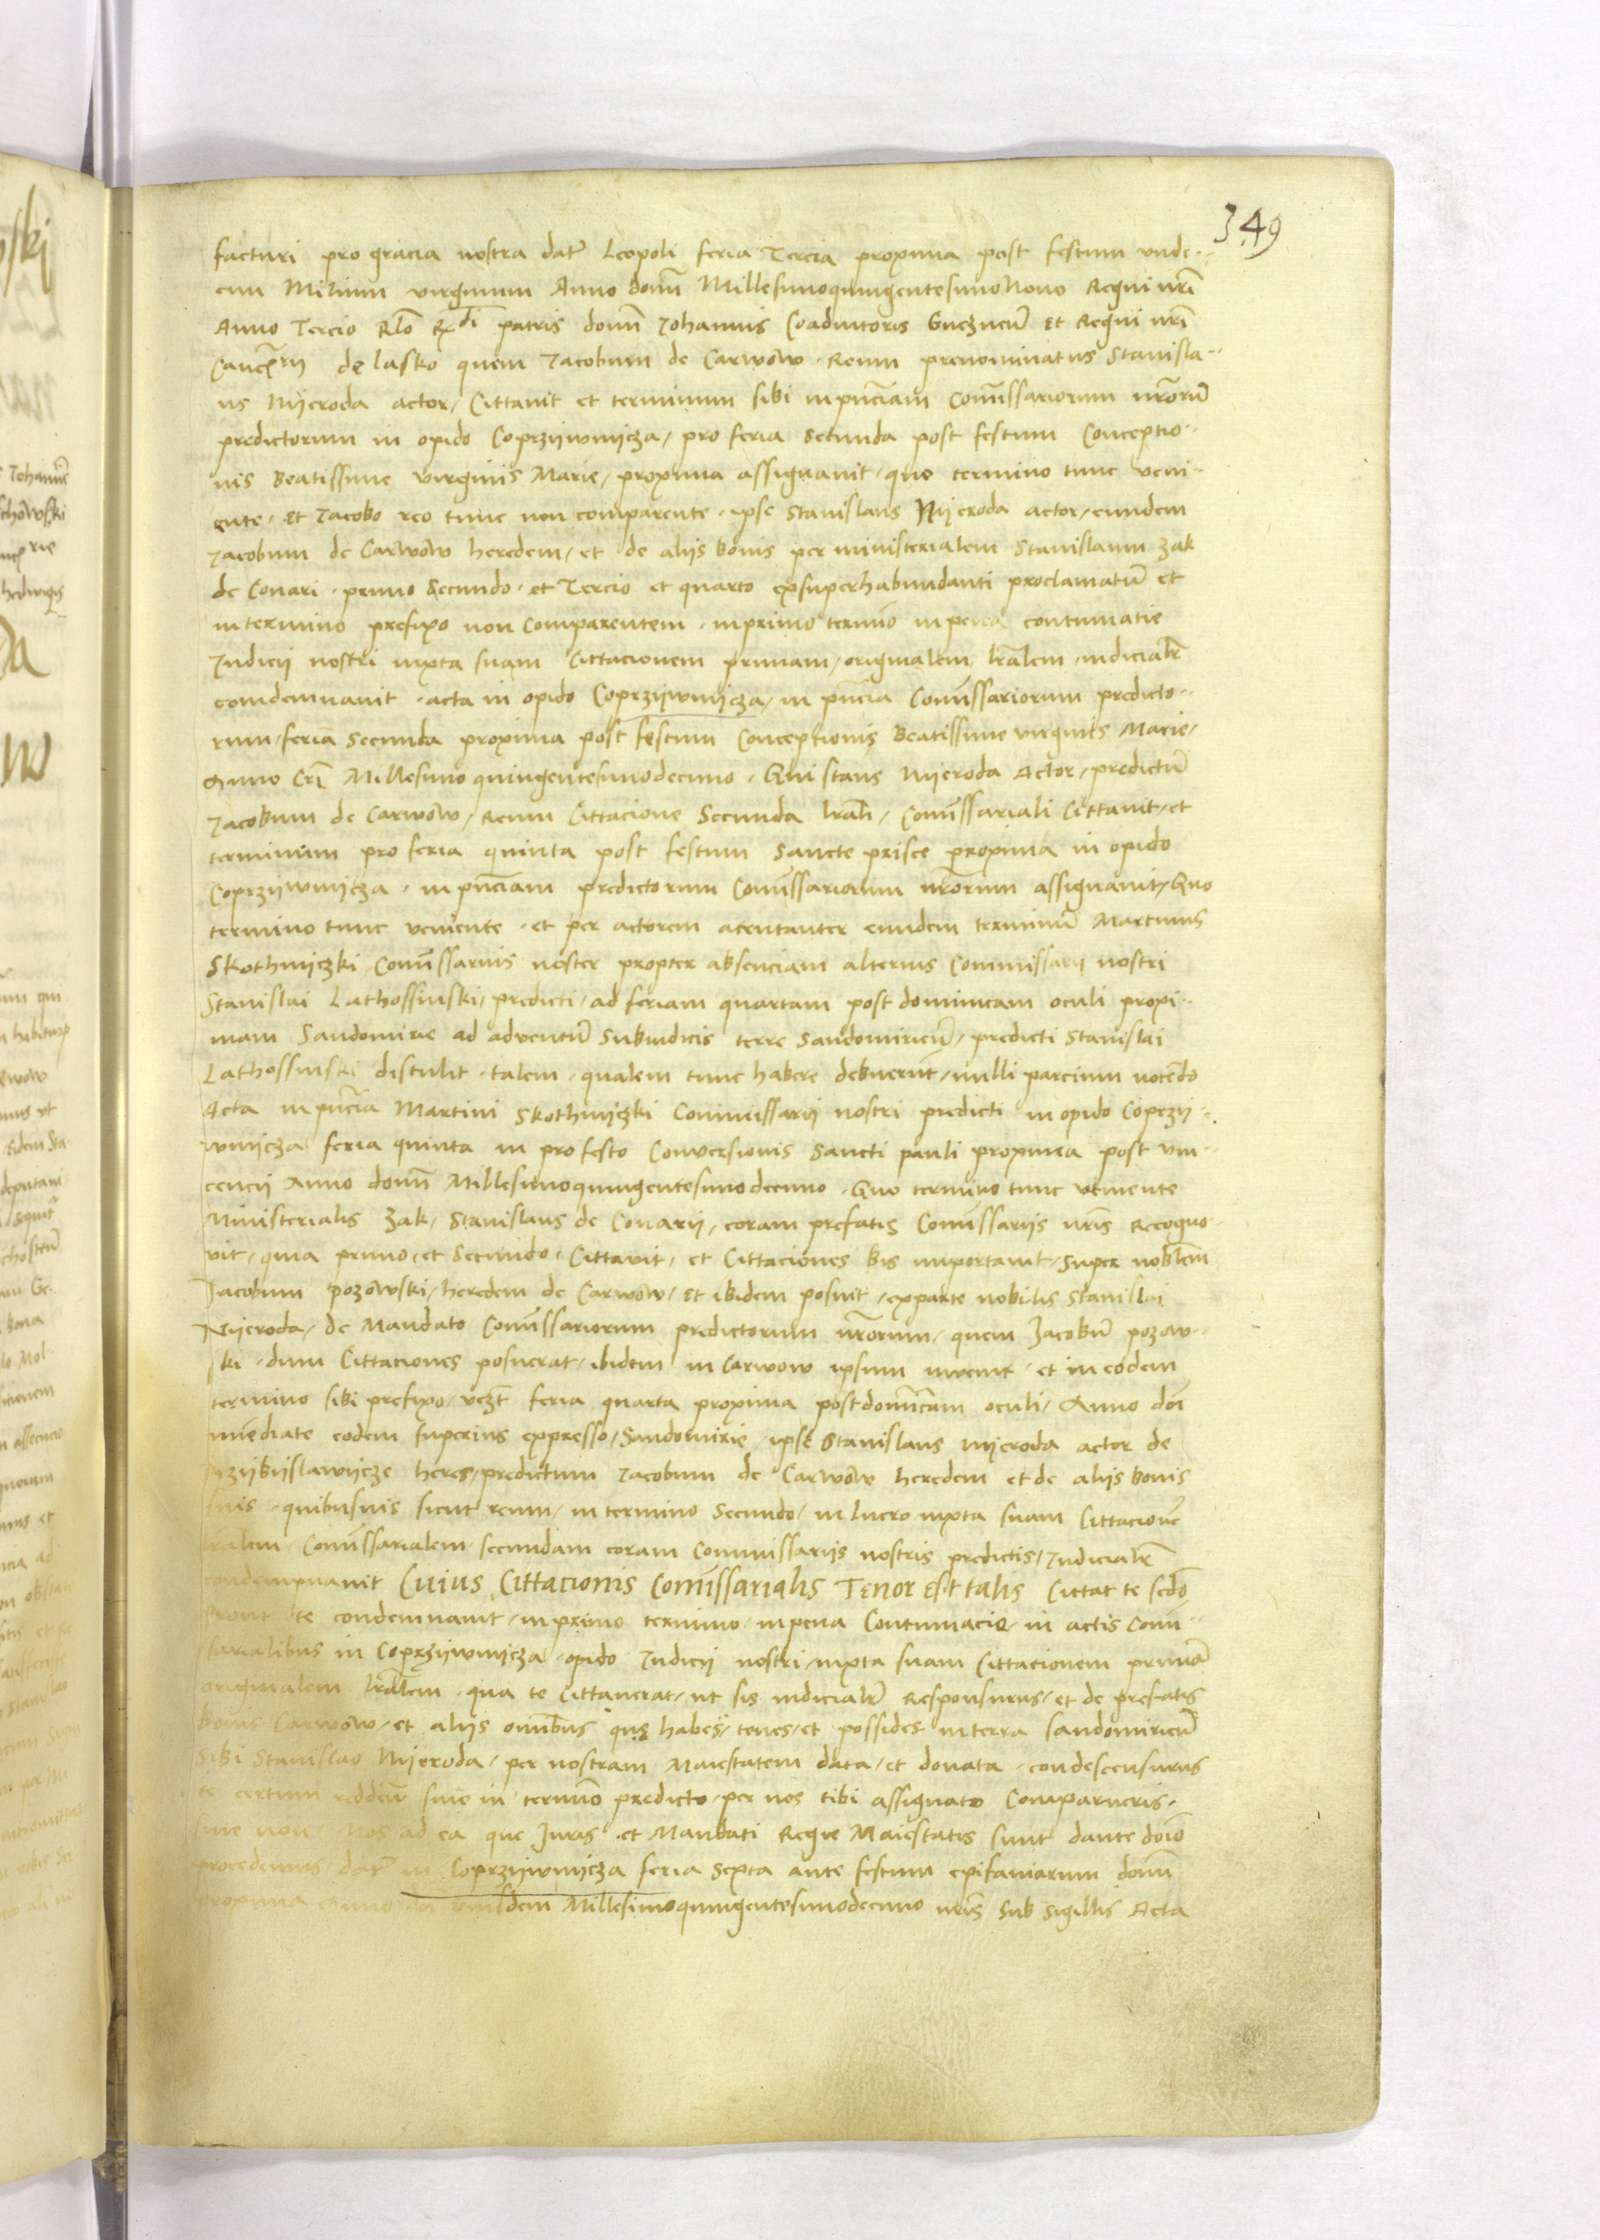 349
facturi pro gracia nostra dat̄ Leopoli feria Tercia proxima post festum vnde-
cim Milium virginum Anno domī Millesimoquingentesimo Nono Regni nrī
Anno Tercio Rlō Rdi patris domī Johannis Coadiutoris Gneznen̄ Et Regni nrī
Cancrii de Lasko quem Jacobum de Carwow Reum prenominatus Stanisla-
us Nijeroda actor / Cittavit et terminum sibi in pn̄ciam Com̄issariorum nrōrum̄
predictorum in opido Coprzijwnijcza / pro feria Secunda post festum Conceptio-
nis Beatissime virginis Marie / proxima assignavit / quo termino tunc veni-
ente / Et Jacobo reo tunc non comparente / ipse Stanislaus Nijeroda actor / eundem
Jacobum de Carwow heredem / et de aliis bonis per ministerialem Stanislaum Zak
de Conari primo Secundo et Tercio et quarto exsuperhabundanti proclamatum̄ et
in termino prefixo non Comparentem in primo termīo in pena contumatie
Judicii nostri iuxta suam Cittacionem primam / originalem lrālem iudicialr̄
condemnavit acta in opido Coprzijwnijcza / in pn̄cia Com̄issariorum predicto-
rum / feria Secunda proxima post festum Conceptionis Beatissime virginis Marie /
Anno Crī Millesimo quingentesimodecimo Qui stans Nijeroda Actor / predictum̄
Jacobum de Carwow / Reum Cittacione Secunda lrālī / Com̄issariali Cittavit / et
terminum pro feria quinta post festum Sancte prisce proxima in opido
Coprzijwnijcza in pn̄ciam predictorum Com̄issariorum nrōrum assignavit / Quo
termino tunc veniente et per actorem atentanter eundem terminum̄ Martinus
Skothniczki Com̄issarius noster propter absenciam alterius Commissarij nostri
Stanislai Lathossinski / predicti / ad feriam quartam post dominicam oculi proxi-
mam Sandomirie ad adventum̄ Subiudicis terre Sandomirien̄ / predicti Stanislai
Lathossinski distulit talem qualem tunc habere debuerunt̄ / nulli parcium nocēdo
Acta in pn̄cia Martini Skothniczki Commissarij nostri predicti in opido Coprzij-
wnijcza feria quinta in profesto Conversionis Sancti pauli proxima post vin-
cencii Anno domī Millesimoquingentesimodecimo Quo termino tunc veniente
Ministerialis Zak / Stanislaus de Conarii / coram prefatis Com̄issariis nrīs Recogno-
vit / quia primo et Secundo Cittavit et Cittaciones bis importavit / super noblem̄
Jacobum pozowski / heredem de Carwow / et ibidem posuit / exparte nobilis Stanislai
Nijeroda / de Mandato Com̄issariorum predictorum nrōrum / quem Jacobum̄ pozow-
ski dum Cittaciones posuerat ibidem in Carwow ipsum invenit et in eodem
termino sibi prefixo / vczt̄ feria quarta proxima post domīcam oculi / Anno doī
imēdiate eodem superius expresso / Sandomirie ipse Stanislaus Nijeroda actor de
przijbijslawijcze heres / predictum Jacobum de Carwow heredem et de aliis bonis
suis quibusuis sicut reum / in termino Secundo / in lucro iuxta suam Cittacionē
lrālem Com̄issarialem secundam coram Commissariis nostris predictis / Judicialr̄
condempnavit Cuius Cittacionis Com̄issarialis Tenor est talis Cittat te scd̄o
Prout te condemnavit in primo termino in pena Contumacie in actis Com̄-
issarialibus in Coprzijwnijcza opido Judicii nostri / iuxta suam Cittacionem primā
originalem lrālem qua te Cittaverat / ut sis iudicialr̄ Responsurus / et de prefatis
bonis Carwow / et aliis om̄ibus que habes / tenes / et possides in terra Sandomirien̄
Sibi Stanislao Nijeroda / per nostram Maiestatem data / et donata condescensurus
te certum redden̄ sive in termīo predicto / per nos tibi assignato Comparueris
sive non Nos ad ea que Juris et Mandati Regie Maiestatis sunt dante doīo
procedemus / dat̄ in Coprzijwnijcza feria Sexta ante festum epifaniarum domī
proxima Anno eiusdem Millesimoquingentesimodecimo nrīs Sub Sigillis Acta